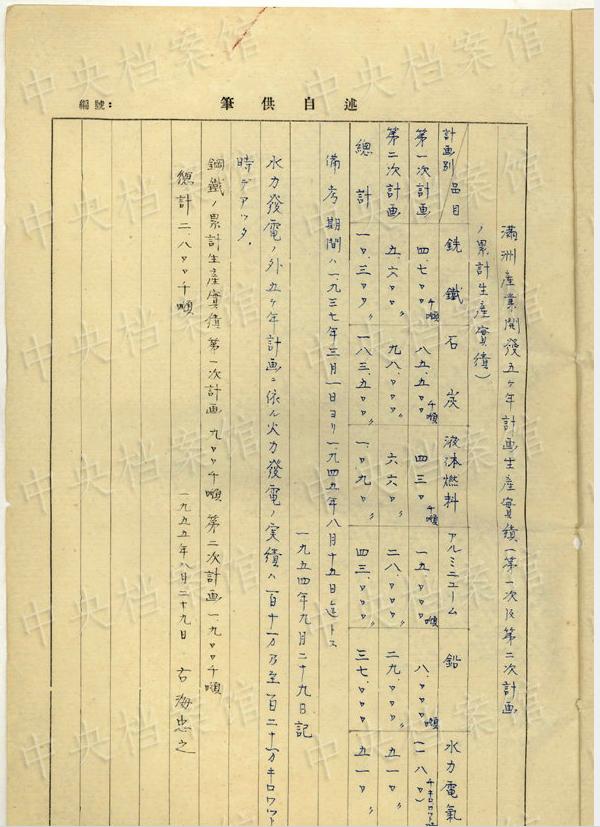 編號:
筆供自述
滿洲産業開發五ヶ年計画生産實績(第一次及第二次計画
ノ累計生産實績)
計画別 品目 銑鐵 石炭 液体燃料 アルミニューム 鉛 水力電氣
第一次計画 四.七〇〇千噸 八五.五〇〇千噸 四三〇千噸 一五.〇〇〇噸 八.〇〇〇噸
第二次計画 五.六〇〇〃 九八.〇〇〇〃 六六〇〃 二八.〇〇〇〃 二九.〇〇〇〃 五一〇〃
總計 一〇.三〇〇〃 一八三.五〇〇〃 一.〇九〇〃 四三.〇〇〇〃 三七.〇〇〇 五一〇〃
備考 期間ハ一九三七年三月一日ヨリ一九四五年八月十五日迄トス
一九五四年九月二十九日記
水力發電ノ外五ヶ年計画ニ依ル火力發電ノ実績ハ一百十万乃至一百二十万キロワット
時デアッタ.
鋼鐵ノ累計生産實績 第一次計画 九〇〇千噸 第二次計画一.九〇〇千噸
總計二.八〇〇千噸
一九五五年八月二十九日 古海忠之
中央档案馆